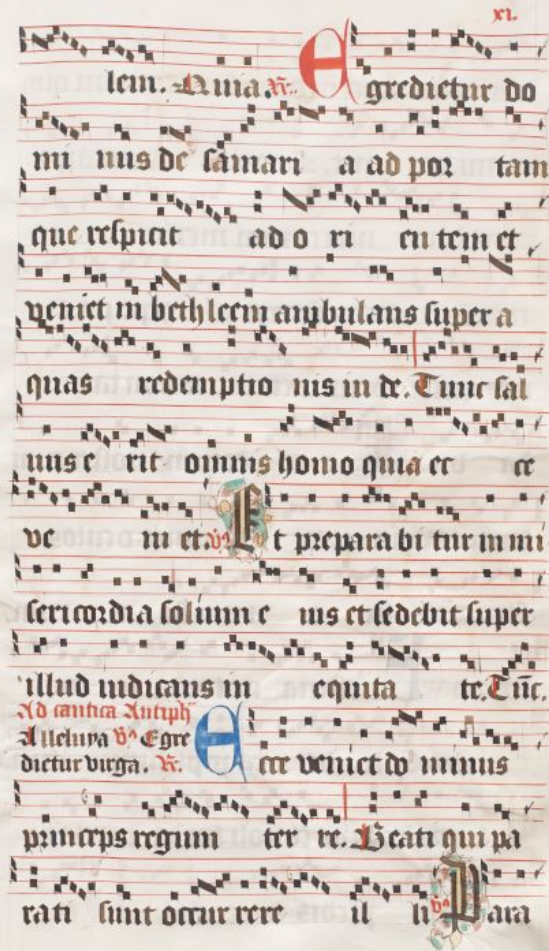 xi.
lem. Quia. R. Egredietur do
mi nus de samari a ad por tam
que respicit ad o ri entem et
veniet in bethleem ambulans super a
quas redemptio nis iu de. Tunc sal
uus e rit omnis homo quia ec ce
ve ni et. V. Et prepara bi tur in mi
sericordia solium e ius et sedebit super
illud iudicans in equita te. Tuc.
Ad cantica Antiph
Alleluya V. Egre
dictur virga. R. Ecce veniet do minus
princeps regum ter re. Beati qui pa
rati sunt occur rere il li V. Para